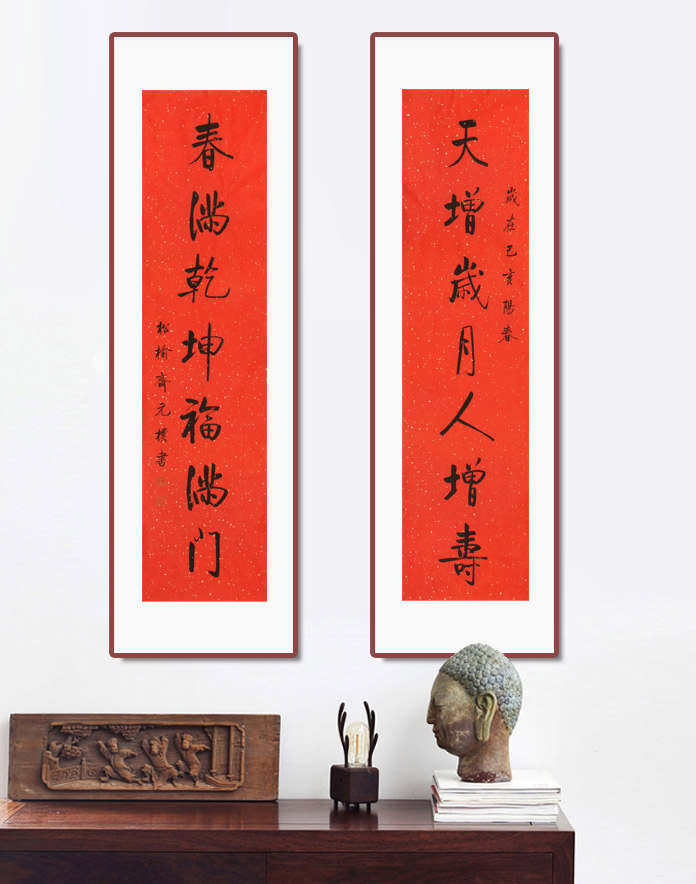 天增歲月人增壽
歲在己亥陽春
春满乾坤福满门
松榆齋元樸書